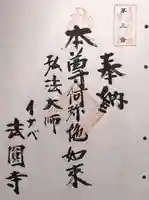 第三番
奉納
本尊阿弥陀如来
弘法大師
イナベ
法圓寺